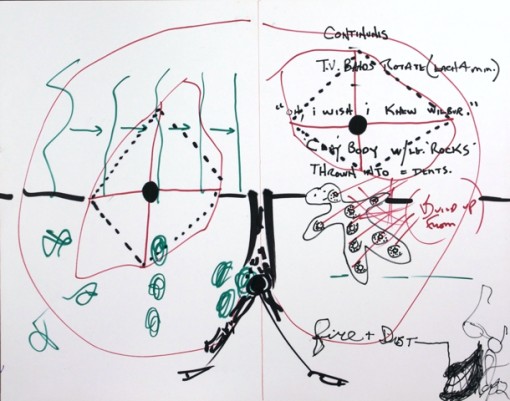 CONTINUOUS
T.V. BANDS ROTATE (EACH 4 mm.)
"OH, I WISH I KNEW WILBUR."
BODY W/ LE. 'ROCKS'
THROWN INTO = DENTS.
BUILD UP
FROM
fire + DUST